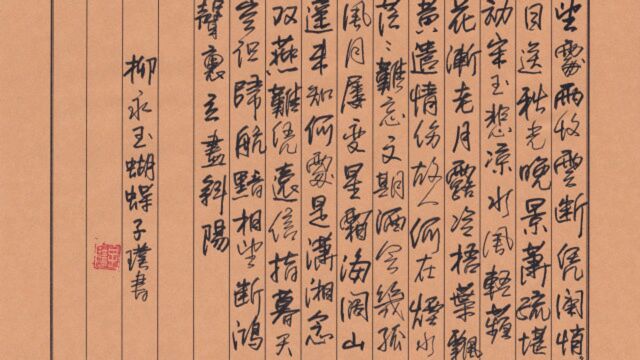 望處雨收雲斷凭闌悄
目送秋光晚景蕭疏堪
動宋玉悲凉水風輕蘋
花漸老月露冷梧葉飄
黃遣情傷故人何在煙水
茫〻難忘文期酒會幾孤
風月屢變星霜海闊山
遙未知何處是瀟湘念
双燕難凭遠信指暮天
空識歸航黯相望斷鴻
聲裏立盡斜陽
柳永玉蝴蝶子璞書